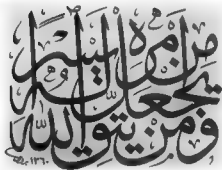 ومن يتق الله
يجعل له
من امره يسرا
١٣٦٠